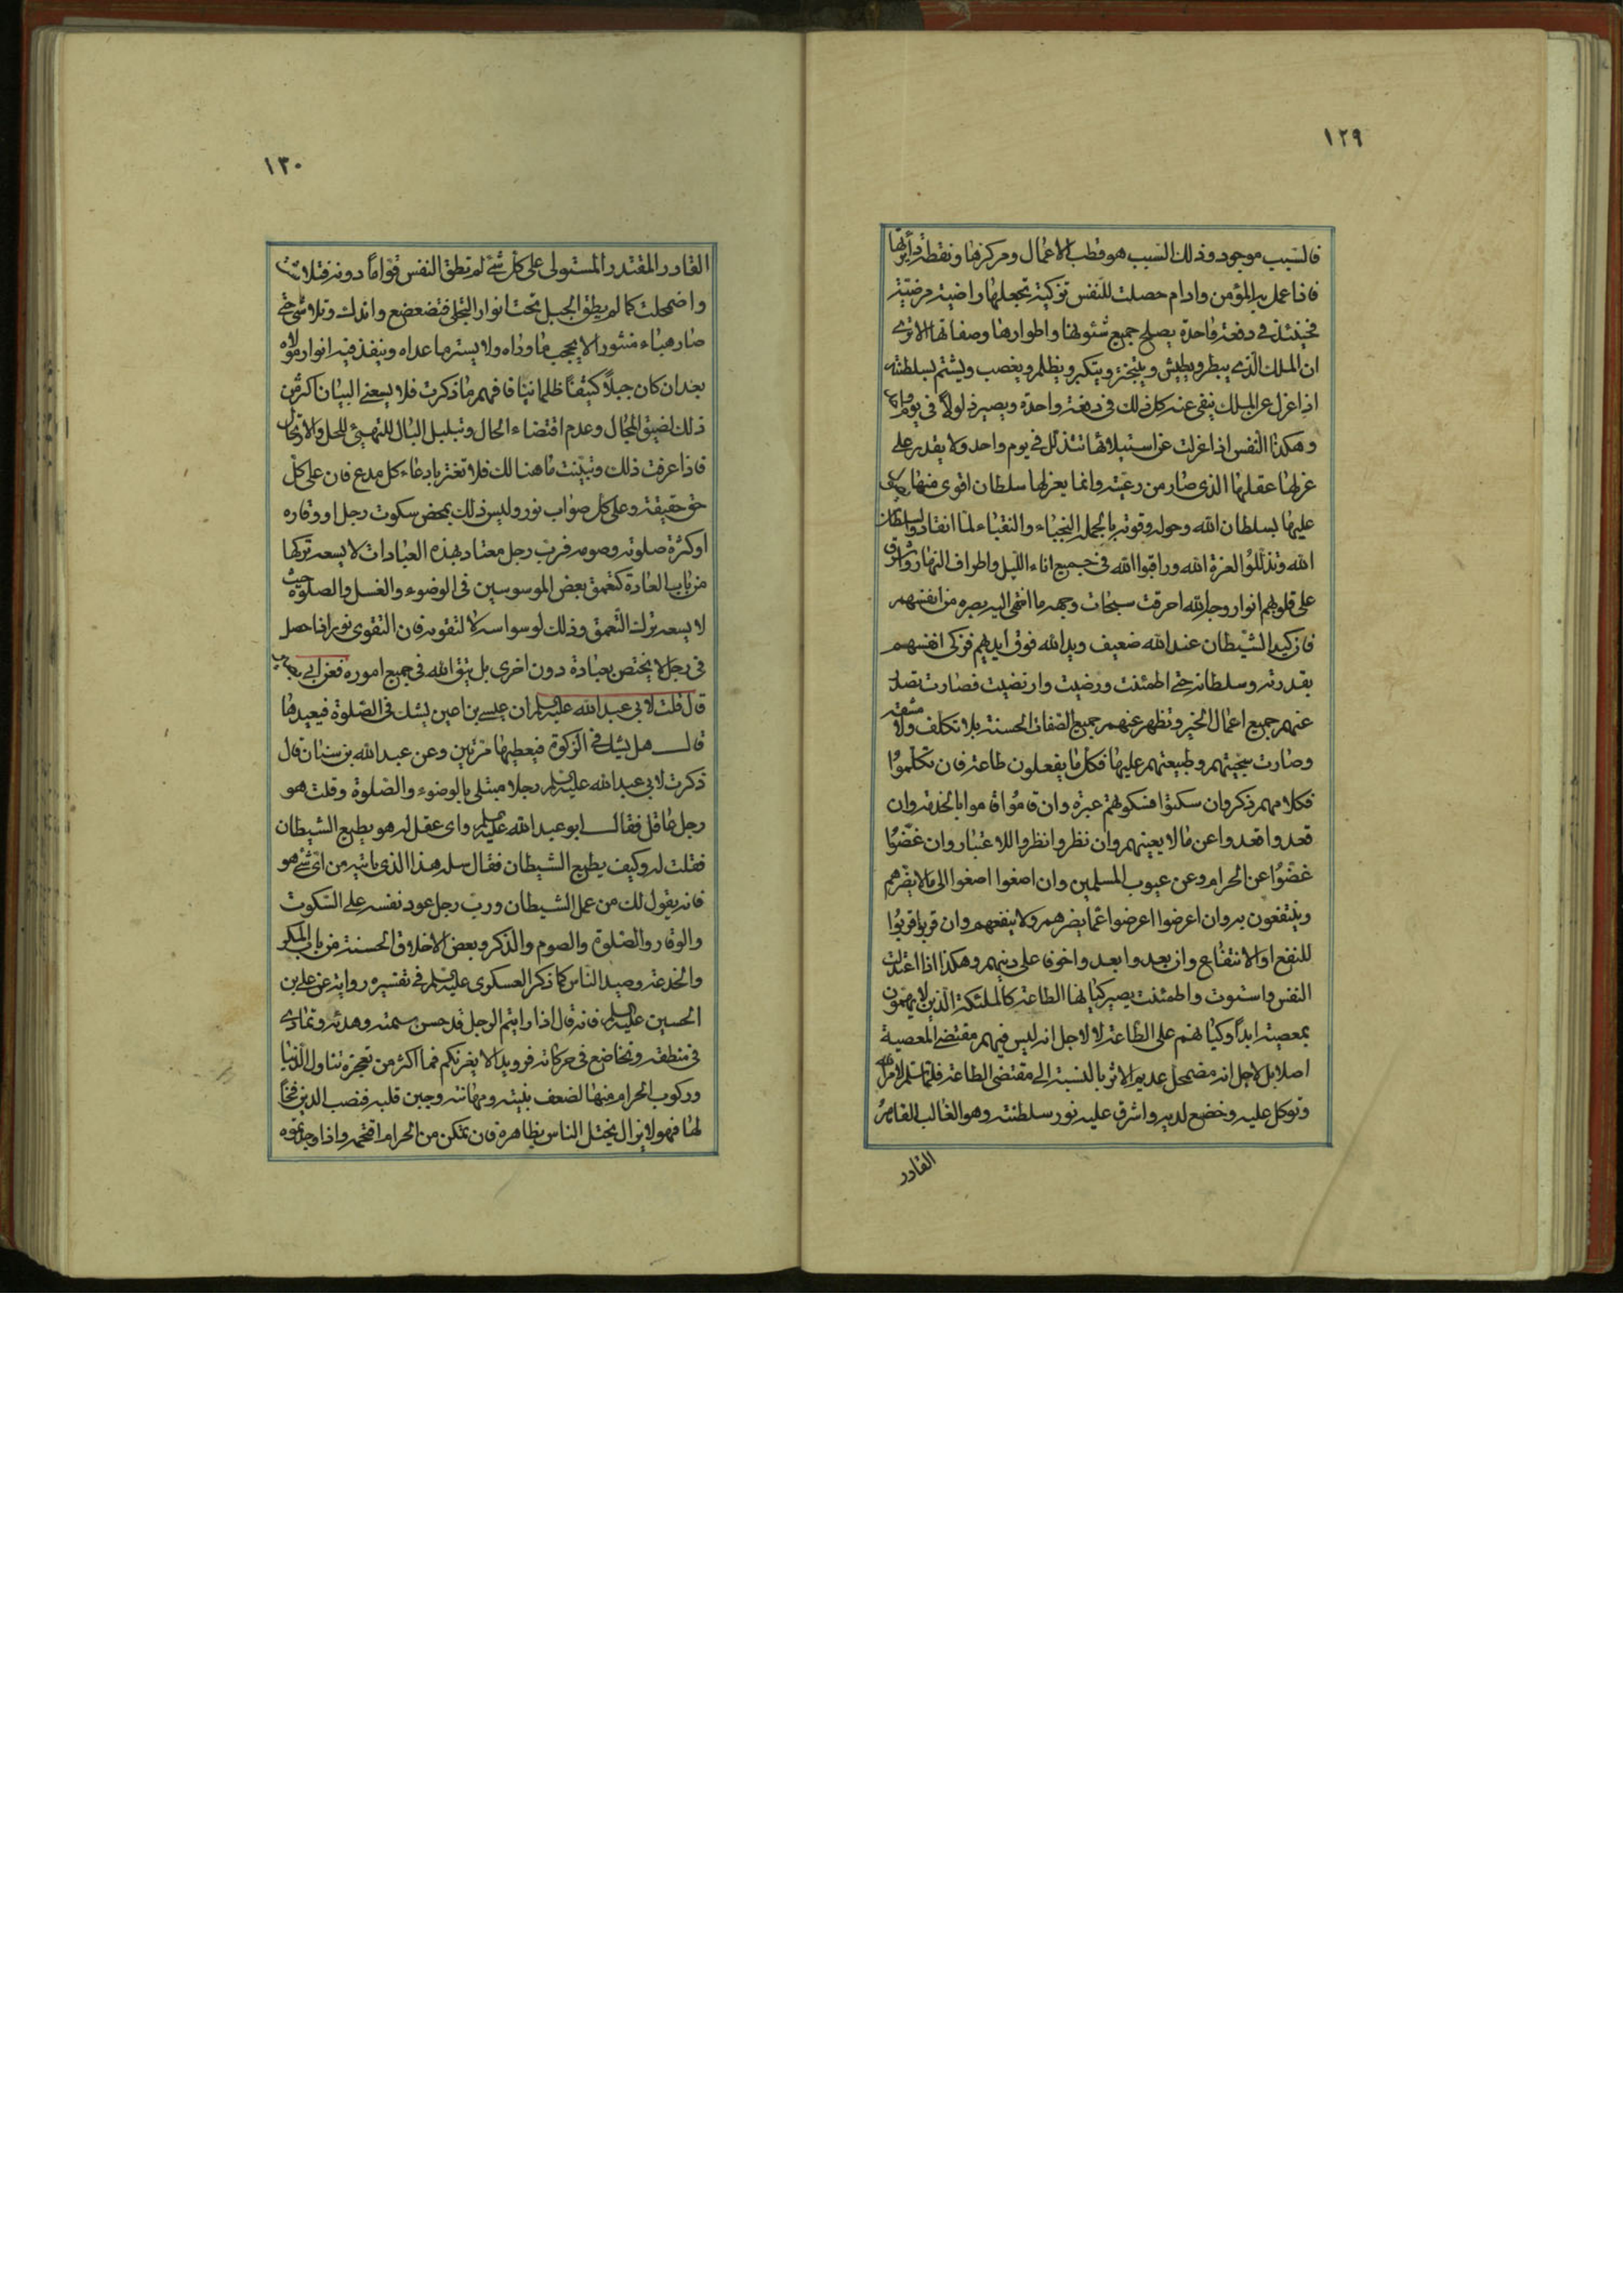 ١٢٩
فالسبب موجود وذلك السبب هو قطب الاعمال ومركزها ونقطة دائرتها
فاذا عمل به المؤمن وادام حصلت للنفس تزكية تجعلها راضية مرضية
فحينئذ في دفعة واحدة يصلح جميع شئونها واطوارها وصفاتها الاترى
ان الملك الذى يبطر ويطيش ويتبختر ويتكبر ويظلم ويغصب ويشتم بسلطنته
اذا عزل عن الملك ينفى عنه كل ذلك فى دفعة واحدة ويصير ذلولا فى يوم
وهكذا النفس اذا عزلت عن استيلائها تتذلل فى يوم واحد ولا يقدر على
عزلها عقلها الذى صار من رعيته وانما يعزلها سلطان اقوى منها
عليها بسلطان الله وحوله وقوته بالجملة النجباء والنقباء لما انقادوا لسلطان
الله وتذللوا لعزة الله وراقبوا الله فى جميع اناء الليل واطراف النهار واشرق
على قلوبهم انوار وجه الله احرقت سبحات وجهه ما انتهى اليه بصره من انفسهم
فان كيد الشيطان عند الله ضعيف ويد الله فوق ايديهم فزكى انفسهم
بقدرته وسلطانه حتى اطمئنت ورضيت وارتضيت فصارت تصدر
عنهم جميع اعمال الخير وتظهر عنهم جميع الصفات الحسنة بلا تكلف ولا مشقة
وصارت سجيتهم وطبيعتهم عليها فكل ما يفعلون طاعة فان تكلموا
فكلامهم ذكر وان سكتوا فسكوتهم عبرة وان قاموا قاموا بالخدمة وان
قعدوا قعدوا عن ما لا يعينهم وان نظروا نظروا للاعتبار وان غضوا
غضوا عن الحرام وعن عيوب المسلمين وان اصغوا اصغوا الى ما لا يضرهم
وينتفعون به وان اعرضوا اعرضوا عما يضرهم ولا ينفعهم وان قربوا قربوا
للنفع او الانتفاع وان بعدوا بعدوا خوفا على دينهم وهكذا اذا اعتدلت
النفس واستوت واطمئنت يصير كيانها الطاعة كالملئكة الذين لا يهمون
بمعصية ابدا وكيانهم على الطاعة لا لاجل انه ليس فيهم مقتضى المعصية
اصلا بل لاجل انه مضمحل عديم الاثر بالنسبة الى مقتضى الطاعة فلما سلم لامر الله
وتوكل عليه وخضع لديه واشرق عليه نور سلطنته وهو الغالب القاهر
القادر
١٣٠
القادر المقتدر المستولى على كل شئ لم تطق النفس قواما دونه فتلاشت
واضمحلت كما لم يطق الجبل تحت انوار التجلى فتضعضع واندك وتلاشى حتى
صار هباء منثورا لا يحجب ما وراه ولا يستر ما عداه وينفذ فيه انوار مولاه
بعد ان كان جبلا كثيفا ظلمانيا فافهم ما ذكرت فلا يسعنى البيان اكثر من
ذلك لضيق المجال وعدم اقتضاء الحال وتبلبل البال للتهيئ للحل والارتحال
فاذا عرفت ذلك وتبينت ما هنالك فلا تغتر بادعاء كل مدع فان على كل
حق حقيقة وعلى كل صواب نور وليس ذلك بمحض سكوت رجل او وقاره
او كثرة صلوته وصومه فرب رجل معتاد بهذه العبادات لا يسعه تركها
من باب العادة كتعمق بعض الموسوسين فى الوضوء والغسل والصلوة حيث
لا يسعه ترك التعمق وذلك لوسواسه لا لتقوته فان التقوى نور اذا حصل
فى رجل لا يختص بعبادة دون اخرى بل يتق الله فى جميع اموره فعن ابى بصير
قال قلت لابى عبد الله عليه السلام ان عيسى بن اعين يشك فى الصلوة فيعيدها
قال هل يشك فى الزكوة فيعطيها مرتين وعن عبد الله بن سنان قال
ذكرت لابى عبد الله عليه السلام رجلا مبتلى بالوضوء والصلوة وقلت هو
رجل عاقل فقال ابو عبد الله عليه السلام واى عقل له وهو يطيع الشيطان
فقلت له وكيف يطيع الشيطان فقال سله هذا الذى ياتيه من اى شئ هو
فانه يقول لك من عمل الشيطان ورب رجل عود نفسه على السكوت
والوقار والصلوة والصوم والذكر وبعض الاخلاق الحسنة من باب المكر
والخدعة وصيد الناس كما ذكر العسكرى عليه السلام فى تفسيره رواية عن على بن
الحسين عليه السلام فانه قال اذا رايتم الرجل قد حسن سمته وهديه وتماوت
فى منطقه وتخاضع فى حركاته فرويدا لا يغرنكم فما اكثر من تعجزه تناول الدنيا
وركوب الحرام منها لضعف بنيته ومهانته وجبن قلبه فنصب الدين فخا
لها فهو لا يزال يختل الناس بظاهره فان تمكن من الحرام اقتحمه واذا وجدتموه